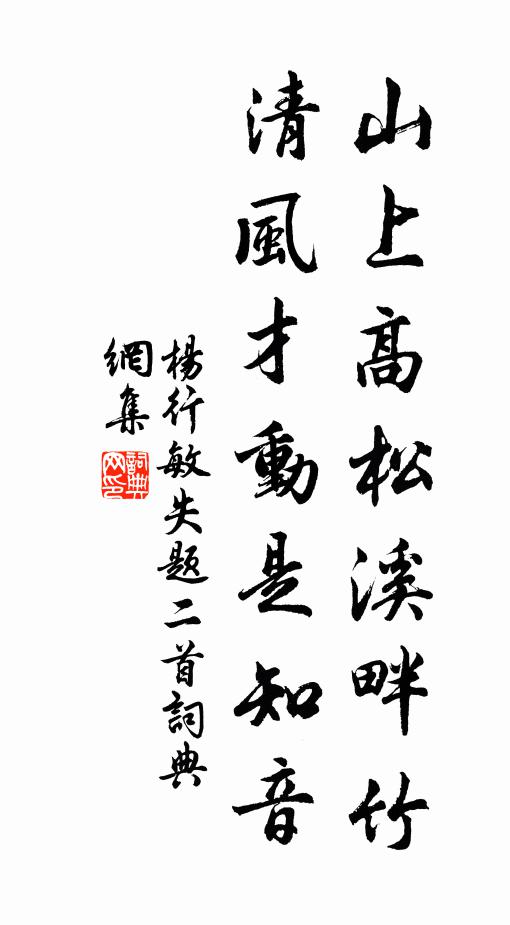 山上高松溪畔竹
清風才動是知音
楊行敏失题二首詞典
網集
詞典網印